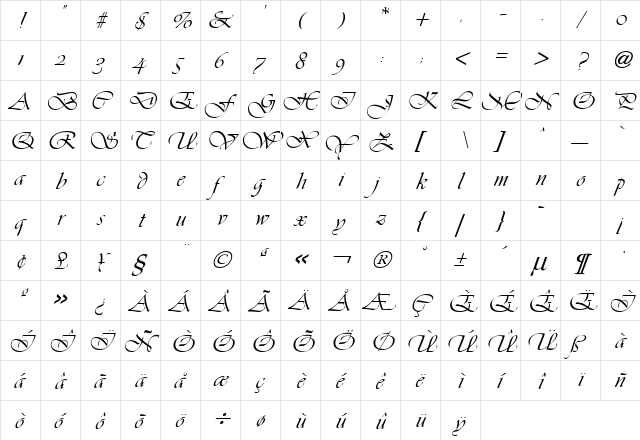 ! " # $ % & ' ( ) * + , - . / 0
1 2 3 4 5 6 7 8 9 : ; < = > ? @
A B C D E F G H I J K L M N O P
Q R S T U V W X Y Z [ \ ] ^ _ `
a b c d e f g h i j k l m n o p
q r s t u v w x y z { | } ~ ¡
¢ £ ¥ § ¨ © ª « ¬ ® ° ± ´ µ ¶ ·
º » ¿ À Á Â Ã Ä Å Æ Ç È É Ê Ë Ì
Í Î Ï Ñ Ò Ó Ô Õ Ö Ø Ù Ú Û Ü ß à
á â ã ä å æ ç è é ê ë ì í î ï ñ
ò ó ô õ ö ÷ ø ù ú û ü ÿ